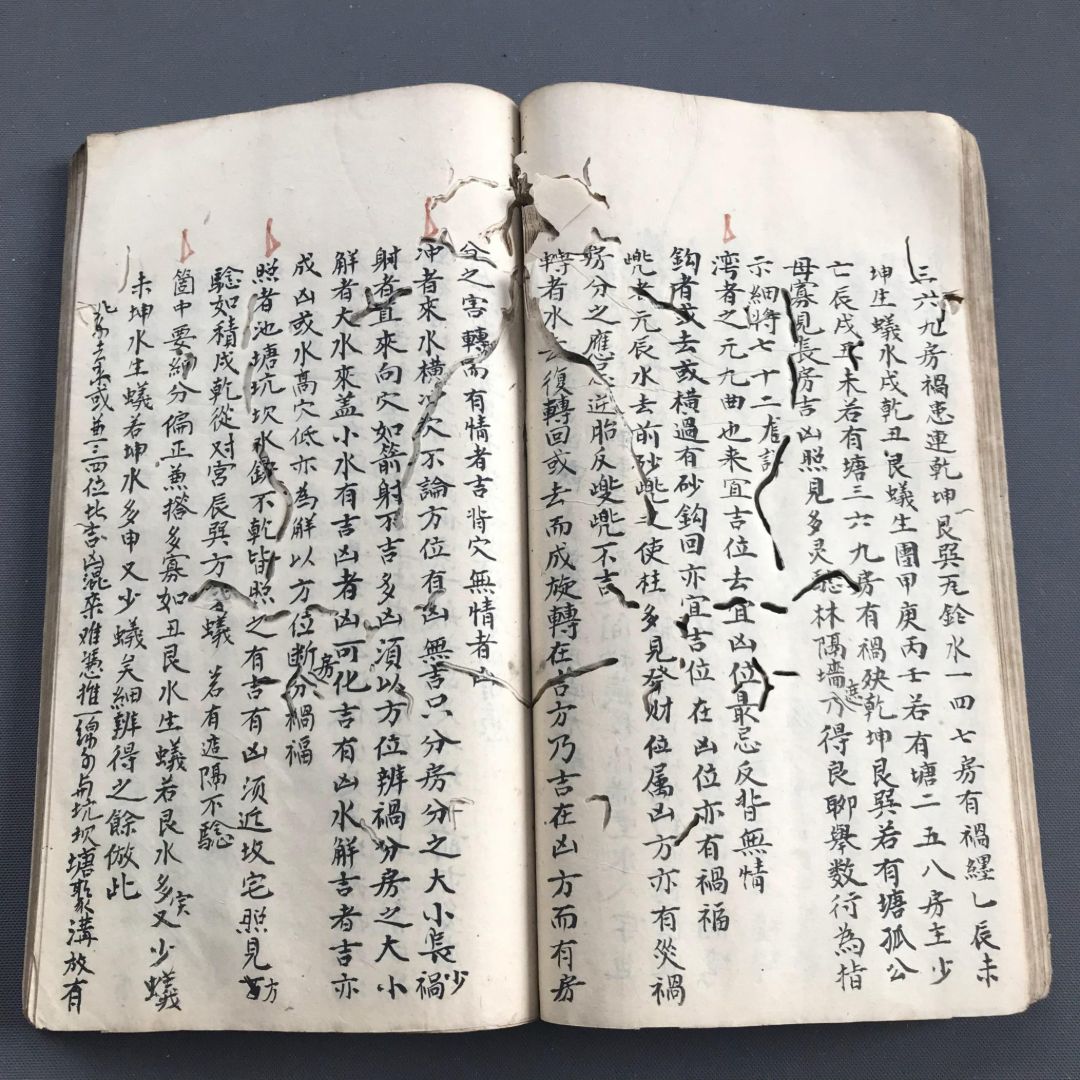 三六九房禍患連乾坤艮巽尅鈴水一四七房有禍纏乙辰未
坤生蟻水戌乾丑艮蟻生團甲庚丙壬若有塘二五八房主少
亡辰戌丑未若有塘三六九房有禍殃乾坤艮巽若有塘孤公
母寡見長房吉凶照見多灵林隔壋遮乃得良聊舉数行為指
示細將七十二
湾者之元九曲也来宜吉位去宜凶位最忌反背無情
鈎者或去或橫過有砂鈎回亦宜吉位在凶位亦有禍福
兠者元辰水去前砂兠之使枉多見發财位属凶方亦有災禍
房分之應忌逆胎反兠不吉
轉者水去復轉回或去而成旋轉在吉方乃吉在凶方而有房
分之害轉而有情者吉背穴無情者凶
冲者來水橫穴不論方位有凶無吉只分房分之大小長少禍
射者直來向穴如箭射不吉多凶須以方位辨禍分房之大小
解者大水來盖小水有吉凶者凶可化吉有凶水解吉者吉亦
成凶或水高穴低亦為解以方位断分房禍福
照者池塘坑坎水不乾皆照之有吉有凶须近坟宅照見方
騐如積戌乾從对宮辰巽方蟻若有遮隔不騐
箇中要細分偏正兼搭多寡如丑艮水生蟻若艮水多又少蟻
未坤水生蟻若坤水多申又少蟻矣細辨得之餘倣此
或三四位吉凶混杂难憑推坑坎塘聚溝放有